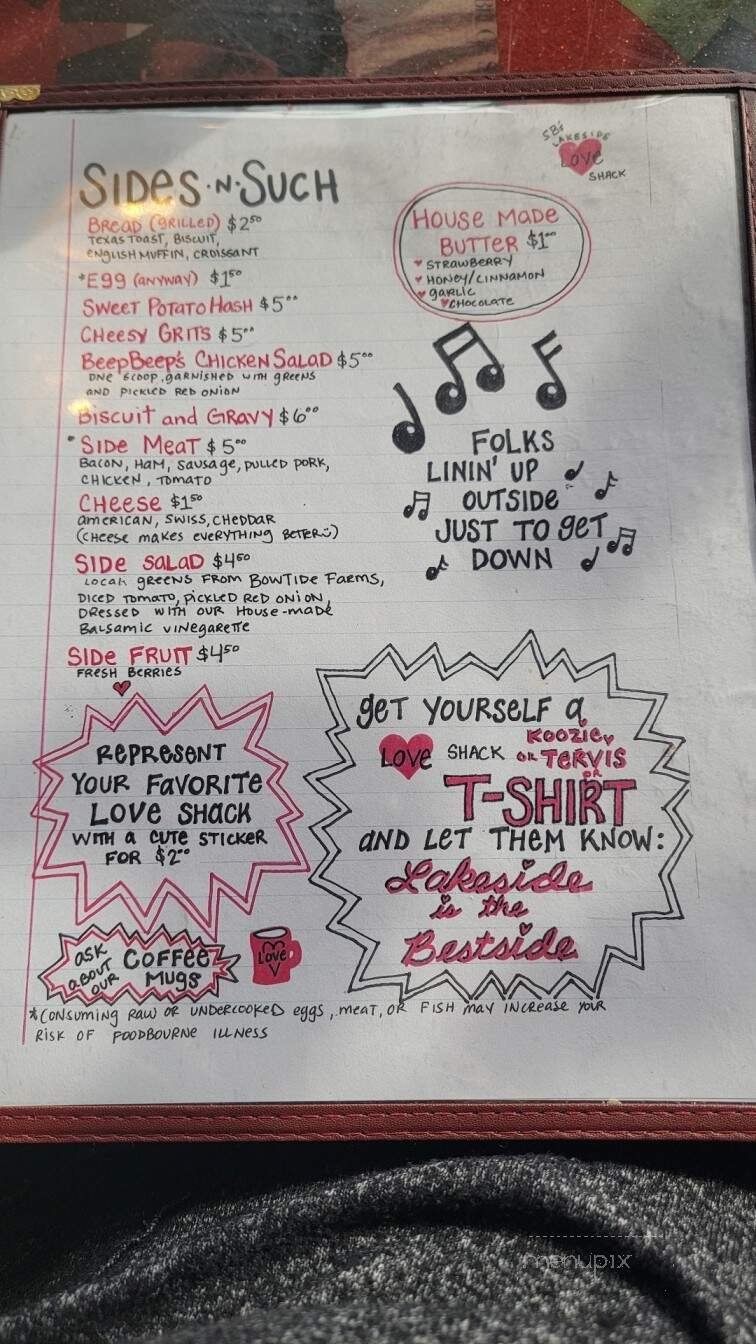 SB's
LAKESIDE
Love
SHACK
SIDES·N·SUCH
BREAD (GRILLED) $2⁵⁰
TEXAS TOAST, BISCUIT,
ENGLISH MUFFIN, CROISSANT
*Egg (ANYWAY) $1⁵⁰
SWEET POTATO HASH $5⁰⁰
CHEESY GRITS $5⁰⁰
BEEPBEEP'S CHICKEN SALAD $5⁰⁰
ONE SCOOP, GARNISHED WITH GREENS
AND PICKLED RED ONION
BISCUIT AND GRAVY $6⁰⁰
*SIDE MEAT $5⁰⁰
BACON, HAM, SAUSAGE, PULLED PORK,
CHICKEN, TOMATO
CHEESE $1⁵⁰
AMERICAN, SWISS, CHEDDAR
(CHEESE MAKES EVERYTHING BETER☺)
SIDE SALAD $4⁵⁰
LOCAL GREENS FROM BOWTIDE FARMS,
DICED TOMATO, PICKLED RED ONION,
DRESSED WITH OUR HOUSE-MADE
BALSAMIC VINEGARETTE
SIDE FRUIT $4⁵⁰
FRESH BERRIES
HOUSE MADE
BUTTER $1⁰⁰
♥ STRAWBERRY
♥ HONEY/CINNAMON
♥ GARLIC
♥ CHOCOLATE
FOLKS
LININ' UP
OUTSIDE
JUST TO GET
DOWN
REPRESENT
YOUR FAVORITE
LOVE SHACK
WITH A CUTE STICKER
FOR $2⁰⁰
GET YOURSELF A
LOVE SHACK KOOZIE,
OR TERVIS
OR
T-SHIRT
AND LET THEM KNOW:
Lakeside
is the
Bestside
ASK
ABOUT
OUR
COFFEE
MUGS
LOVE
*CONSUMING RAW OR UNDERCOOKED EGGS, MEAT, OR FISH MAY INCREASE YOUR
RISK OF FOODBOURNE ILLNESS
menupix